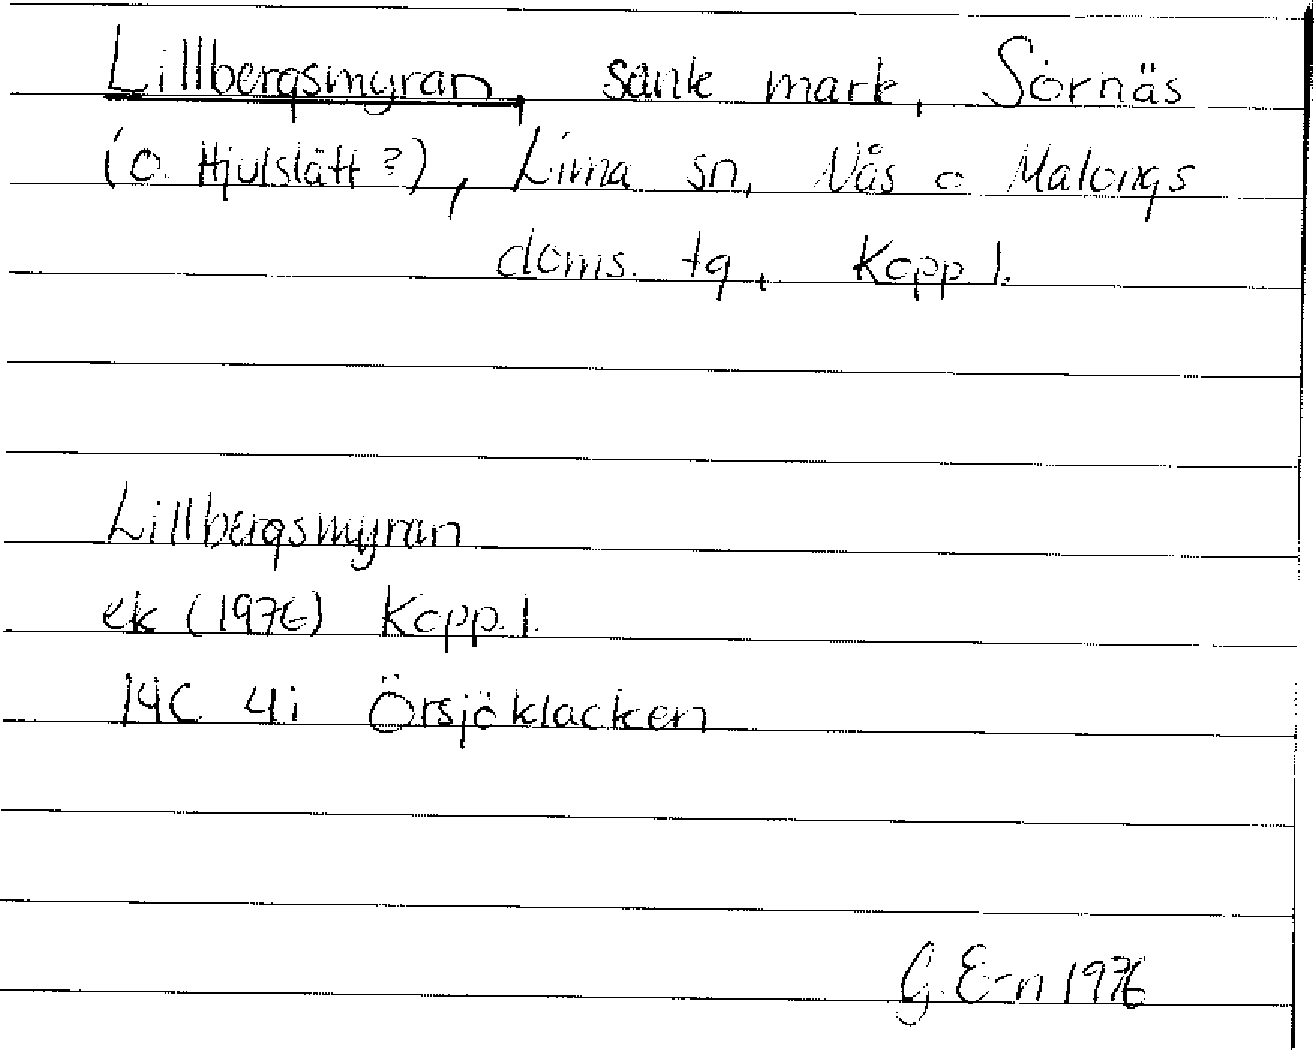 Lillbergsmyran, sank mark, Sörnäs
(o. Hjulslätt?), Lima sn, Nås o Malungs
doms. tg, Kopp l.
Lillbergsmyran
ek (1976) Kopp. l.
14C 4i Örsjöklacken
G. E-n 1976